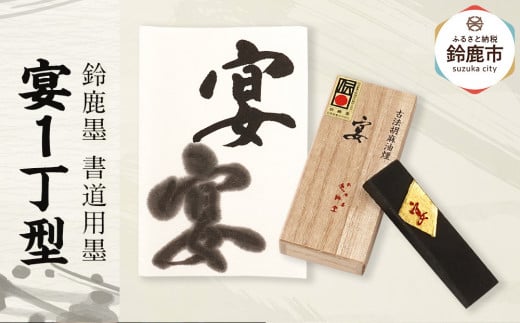 鈴鹿墨 書道用墨
宴1丁型
宴
宴
古法胡麻油煙
宴
ふるさと納税
鈴鹿市
suzuka city